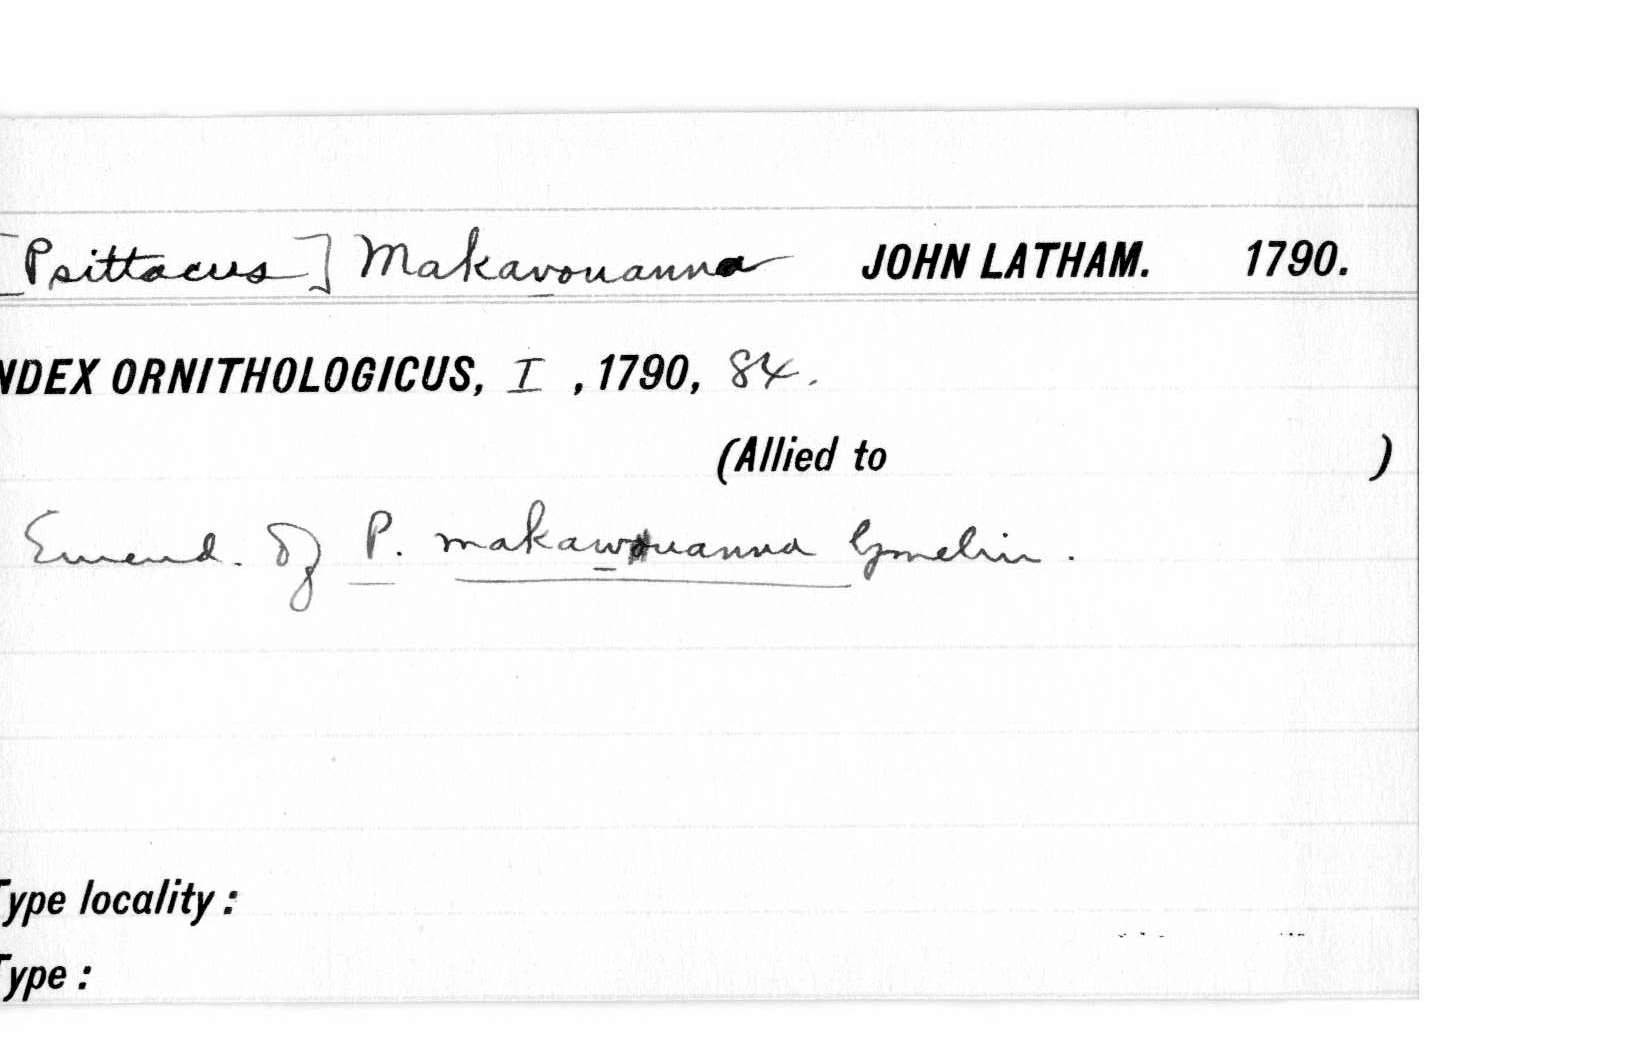 [Psittacus] Makavouanna JOHN LATHAM. 1790.
NDEX ORNITHOLOGICUS, I , 1790, 84.
(Allied to )
Emend. of P. makawouanna Gmelin.
Type locality :
Type :